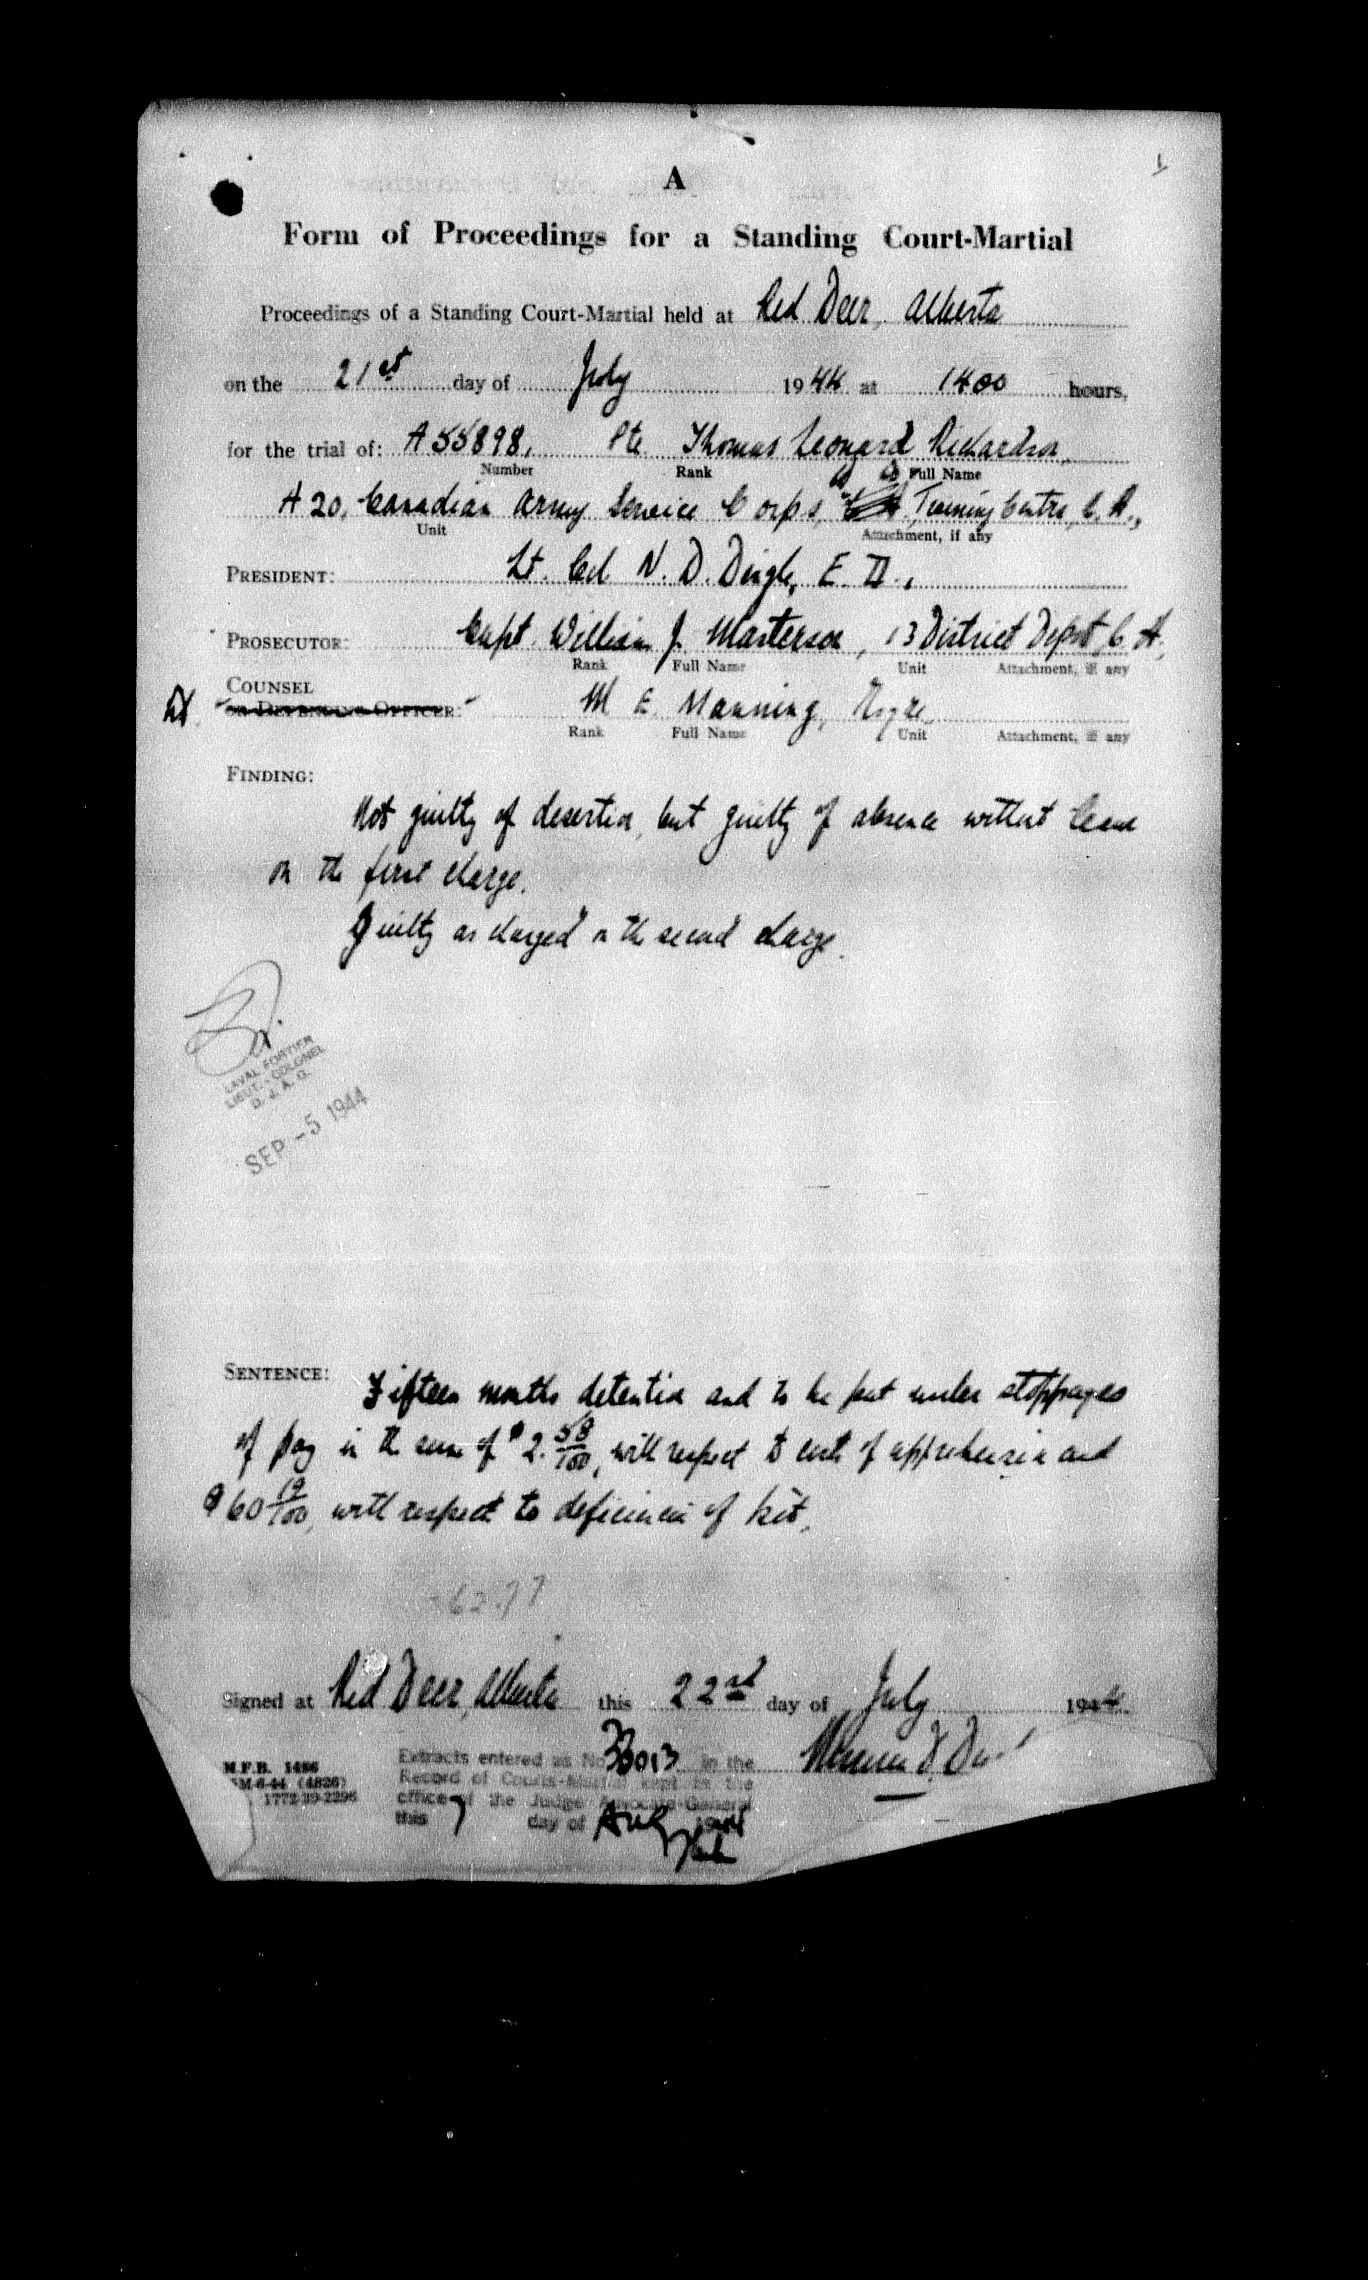 A
Form of Proceedings for a Standing Court-Martial
Proceedings of a Standing Court-Martial held at Red Deer, Alberta
on the 21st day of July 1944 at 1400 hours,
for the trial of: A55898, Pte Thomas Leonard Richardson,
Number Rank Full Name
A20, Canadian Army Service Corps, Training Centre, C.A.,
Unit Attachment, if any
PRESIDENT: Lt. Col N. D. Dingle, E.D.,
PROSECUTOR: Capt William J. Masterson, 13 District Depot, C.A.,
Rank Full Name Unit Attachment, if any
COUNSEL
OR DEFENDING OFFICER: M E. Manning,
Rank Full Name Unit Attachment, if any
FINDING:
Not guilty of desertion, but guilty of absence without leave
on the first charge.
Guilty as charged on the second charge.
LAVAL FORTIER
LIEUT.-COLONEL
D. J. A. G.
SEP -5 1944
SENTENCE: Fifteen months detention and to be put under stoppages
of pay in the sum of $2.58/100, with respect to cost of apprehension and
$60 19/100, with respect to deficiencies of kit.
62.77
Signed at Red Deer, Alberta this 22nd day of July 1944
M.F.B. 1486
5M-6-44 (4826)
1772-39-2296
Extracts entered as No 33013 in the
Record of Courts-Martial kept in the
office of the Judge Advocate-General
this 7 day of Aug 1944